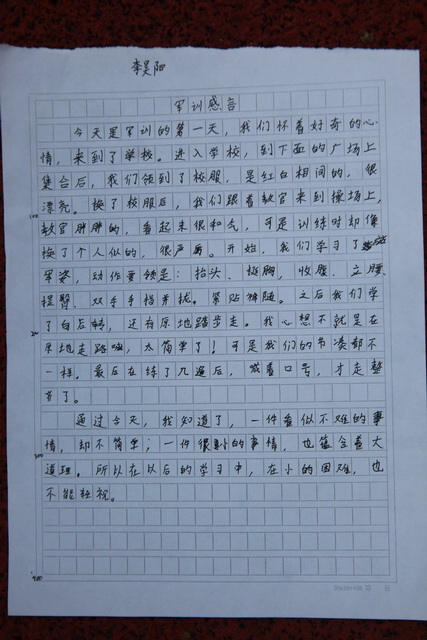 李昊阳
军训感言
今天是军训的第一天，我们怀着好奇的心
情，来到了学校。进入学校，到下面的广场上
集合后，我们领到了校服，是红白相间的，很
漂亮。换了校服后，我们跟着教官来到操场上，
教官胖胖的，看起来很和气，可是训练时却像
换了个人似的，很严肃。开始，我们学习了
军姿，动作要领是：抬头、挺胸，收腹、立腰、
提臀、双手手指并拢。紧贴裤缝。之后我们学
了向后转，还有原地踏步走。我心想不就是在
原地走路嘛，太简单了！可是我们的节凑都不
一样。最后在练了几遍后，喊着口号，才走整
齐了。
通过今天，我知道了，一件看似不难的事
情，却不简单；一件很小的事情，也蕴含着大
道理。所以在以后的学习中，在小的困难，也
不能轻视。
100
200
300
400